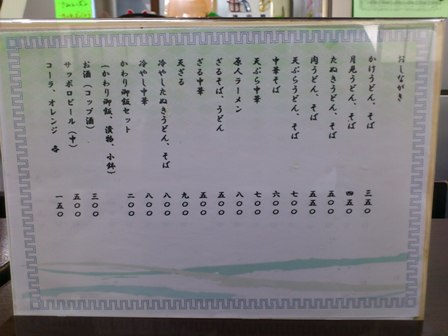 おしながき
かけうどん、そば 三五〇
月見うどん、そば 四五〇
たぬきうどん、そば 五〇〇
肉うどん、そば 五五〇
天ぷらうどん、そば 七〇〇
中華そば 六〇〇
天ぷら中華 七〇〇
原人ラーメン 八〇〇
ざるそば、うどん 五五〇
ざる中華 五〇〇
天ざる 九〇〇
冷やしたぬきうどん、そば 八〇〇
冷やし中華 八〇〇
かわり御飯セット 二〇〇
(かわり御飯、漬物、小鉢)
お酒(コップ酒) 三〇〇
サッポロビール(中) 五〇〇
コーラ、オレンジ 各 一五〇